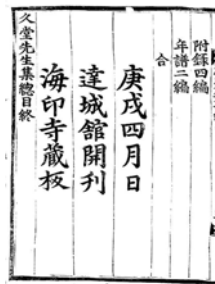 附錄四編
年譜二編
合
庚戌四月日
達城館開刊
海印寺藏板
久堂先生集總目終